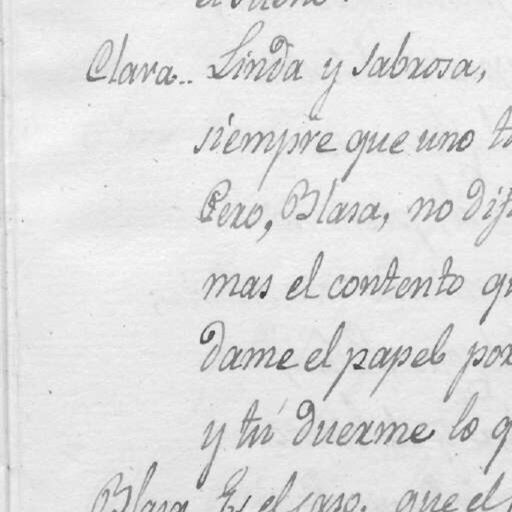 el sueño.
Clara.. Linda y sabrosa,
siempre que uno
Pero, Blasa, no
mas el contento
dame el papel
y tú duerme lo
Blasa Es el caso, que el